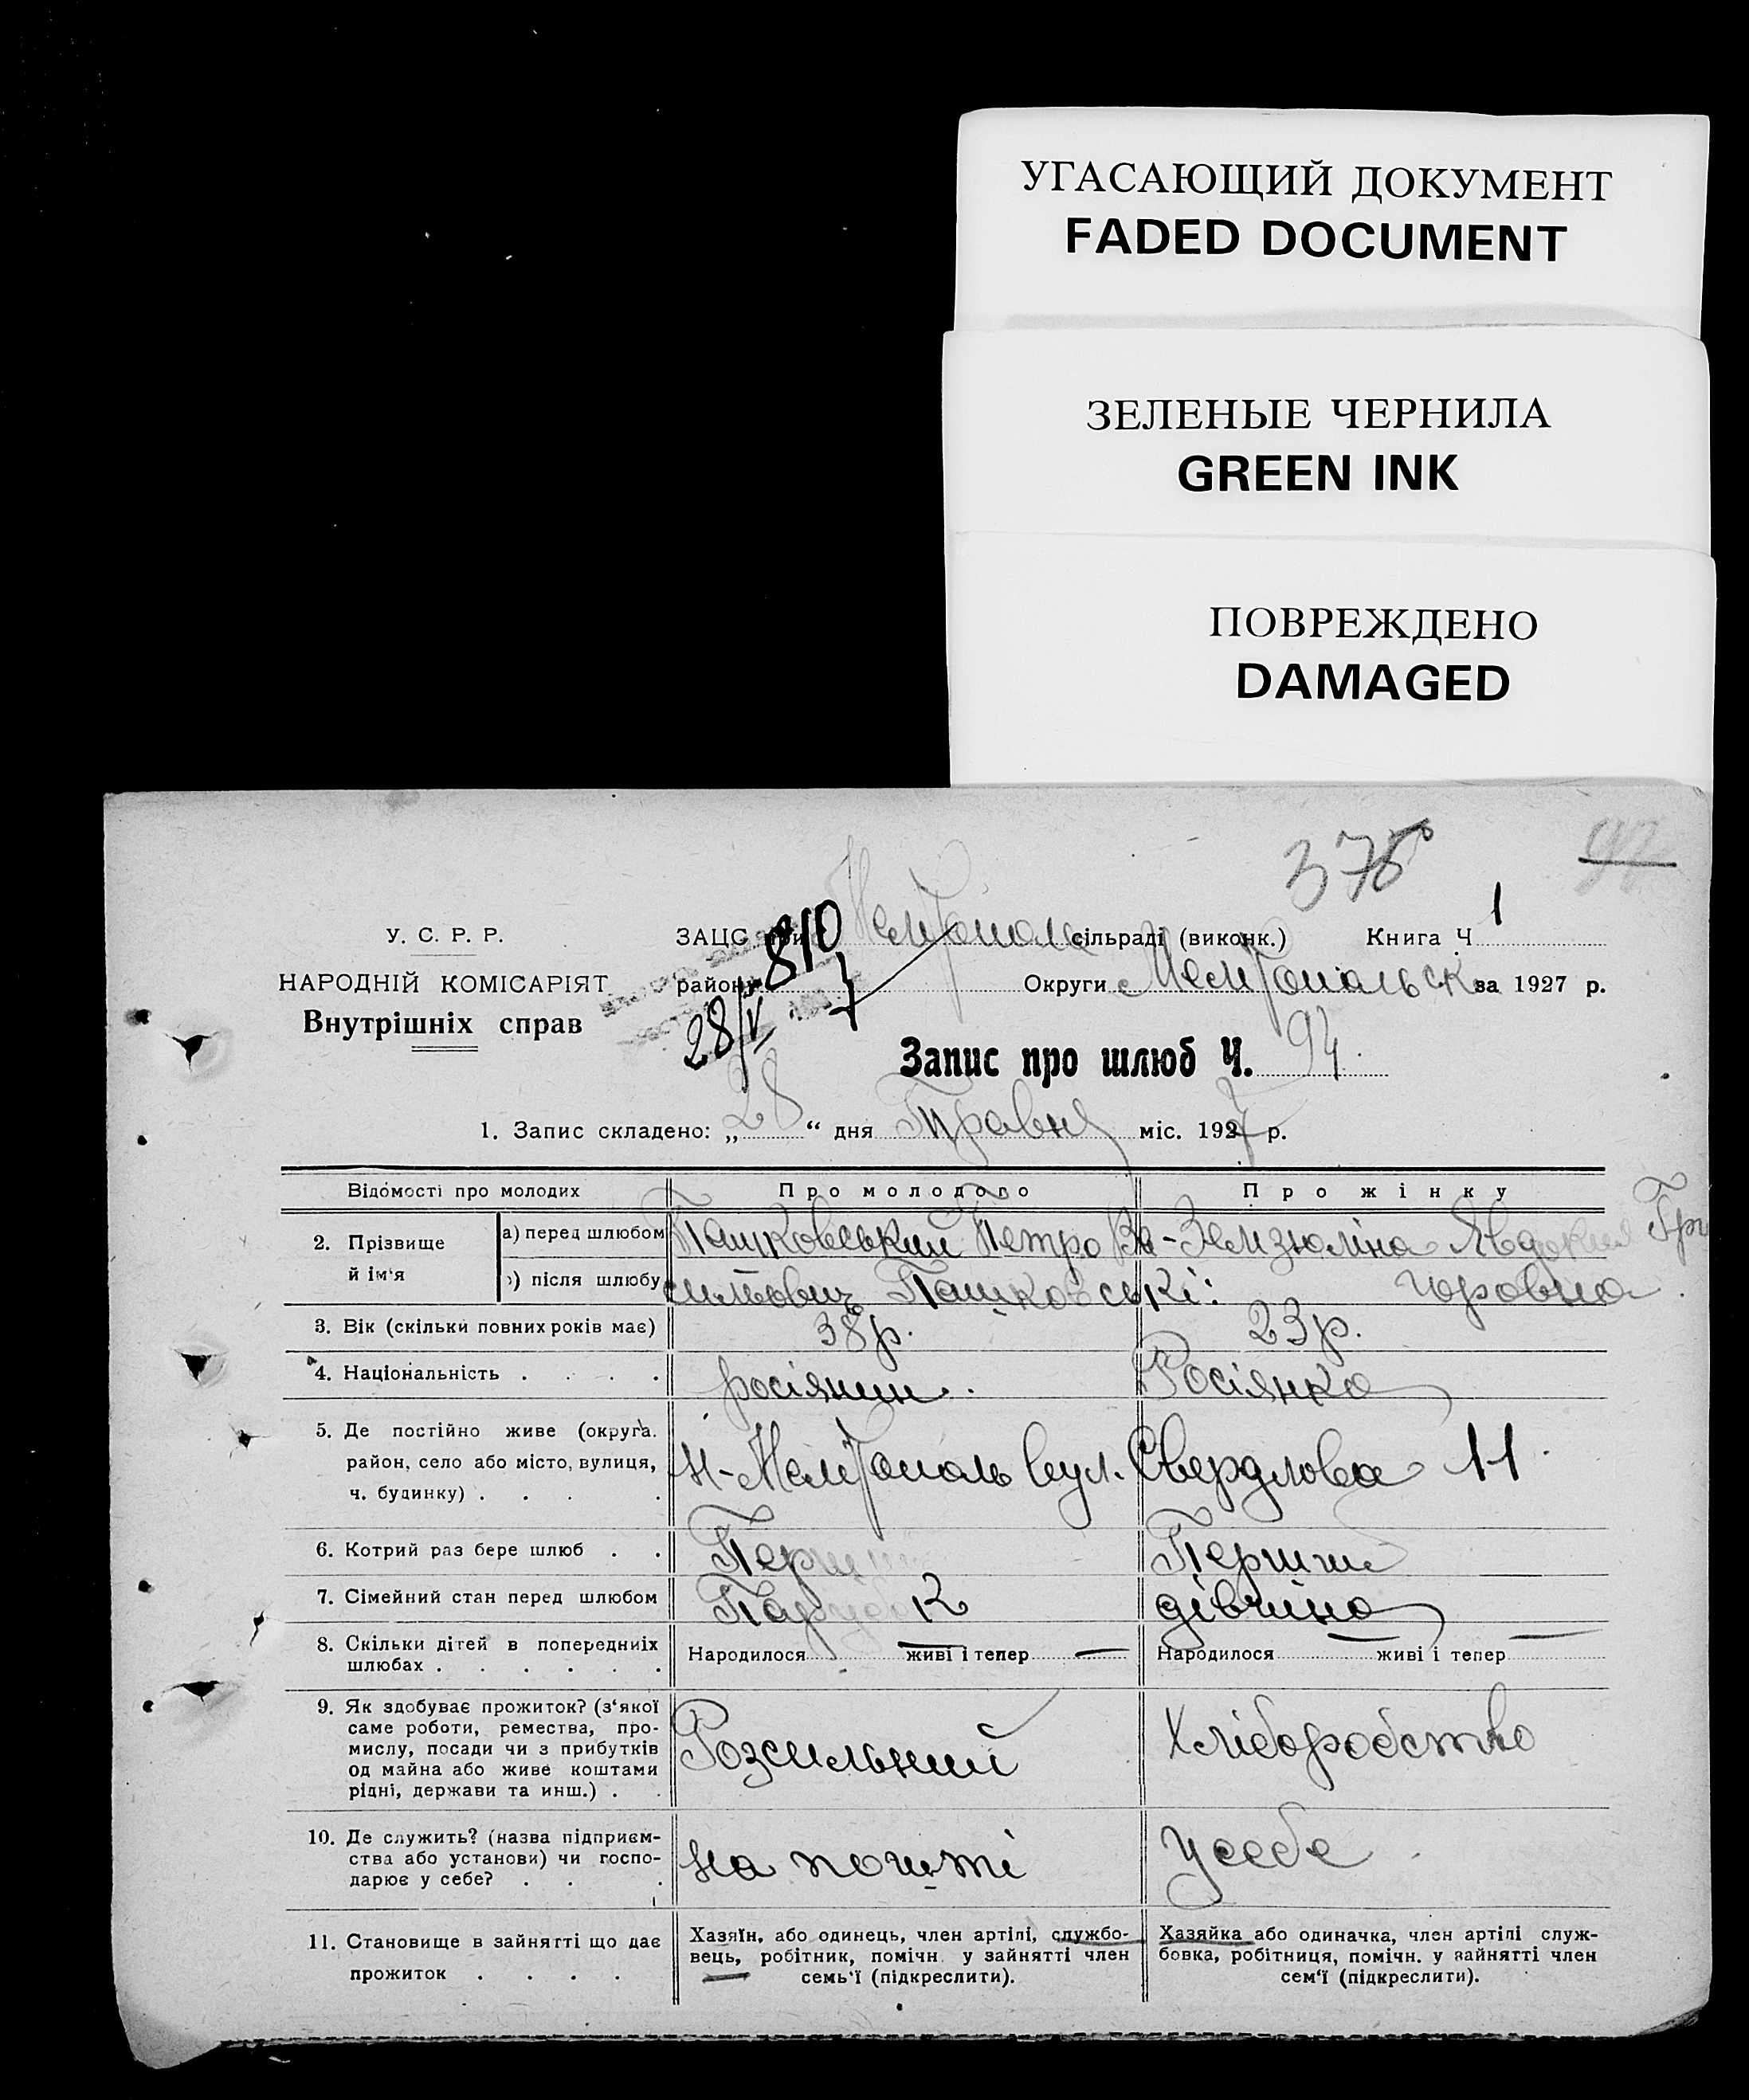 УГАСАЮЩИЙ ДОКУМЕНТ
FADED DOCUMENT
ЗЕЛЕНЫЕ ЧЕРНИЛА
GREEN INK
ПОВРЕЖДЕНО
DAMAGED
378
У. С. Р. Р.
ЗАЦС при Мелітополь сільраді (виконк.) Книга Ч 1
810
НАРОДНІЙ КОМІСАРІЯТ
району Округи Мелітопольськ за 1927 р.
Внутрішніх справ
28/V 7
Запис про шлюб Ч. 94.
1. Запис складено: „28“ дня Травня міс. 1927 р.
Відомості про молодих Про молодого Про жінку
2. Прізвище й ім'я
а) перед шлюбом Пашковський Петро Ва- Земзюліна Явдокия Гри
) після шлюбу сильович Пашковські: горовна.
3. Вік (скільки повних років має) 38 р. 23 р.
4. Національність . . . . росіянин. Росіянка
5. Де постійно живе (округа.
район, село або місто, вулиця, м-Мелітополь вул. Свердлова 11.
ч. будинку) . . . .
6. Котрий раз бере шлюб . . Перший Перший
7. Сімейний стан перед шлюбом Парубок дівчина
8. Скільки дітей в попередниіх
шлюбах . . . . . . Народилося — живі і тепер — Народилося — живі і тепер —
9. Як здобуває прожиток? (з'якої
саме роботи, ремества, про-
мислу, посади чи з прибутків Розсильний Хліборобство
од майна або живе коштами
рідні, держави та инш.) . .
10. Де служить? (назва підприєм-
ства або установи) чи госпо- на пошті У себе.
дарює у себе? . . .
11. Становище в зайнятті що дає
прожиток . . . .
Хазяїн, або одинець, член артілі, службо-
вець, робітник, помічн. у зайнятті член
семь'ї (підкреслити).
Хазяйка або одиначка, член артілі служ-
бовка, робітниця, помічн. у зайнятті член
сем'ї (підкреслити).